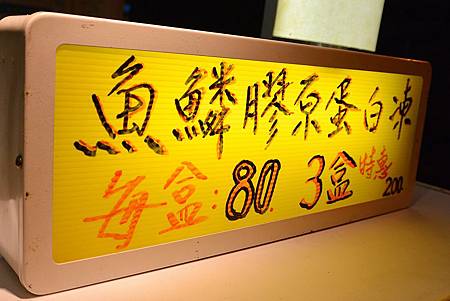 魚鱗膠原蛋白凍
每盒:80. 3盒特惠200.